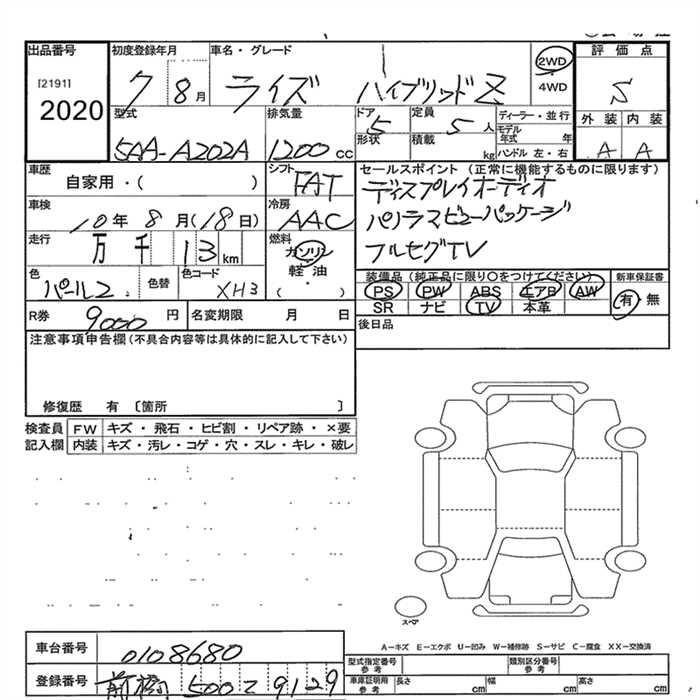 出品番号 [2191] 2020
初度登録年月 7 8月
車名・グレード ライズ ハイブリッドZ
2WD
4WD
評価点 S
外装 内装
A A
型式 5AA-A202A
排気量 1200cc
ドア 5
形状
定員 5人
積載 kg
ディーラー・並行
モデル年式 年
ハンドル 左・右
車歴 自家用・( )
シフト FAT
セールスポイント (正常に機能するものに限ります)
ディスプレイオーディオ
パノラマビューパッケージ
フルセグTV
車検 10年8月(18日)
冷房 AAC
走行 万千 13km
燃料 ガソリン
軽油
・( )
色 パール2.
色替
色コード XH3
装備品 (純正品に限り○をつけてください)
PS PW ABS エアB AW
SR ナビ TV 本革
新車保証書
有・無
R券 9000円
名変期限 月 日
後日品
注意事項申告欄(不具合内容等は具体的に記入して下さい)
修復歴 有 〔箇所 〕
検査員記入欄
FW キズ・飛石・ヒビ割・リペア跡・×要
内装 キズ・汚レ・コゲ・穴・スレ・キレ・破レ
スペア
A―キズ E―エクボ U―凹み W―補修跡 S―サビ C―腐食 XX―交換済
車台番号 0108680
登録番号 前橋 500 て 9129
型式指定番号 参考
類別区分番号 参考
車庫証明用 参考
長さ cm
幅 cm
高さ cm